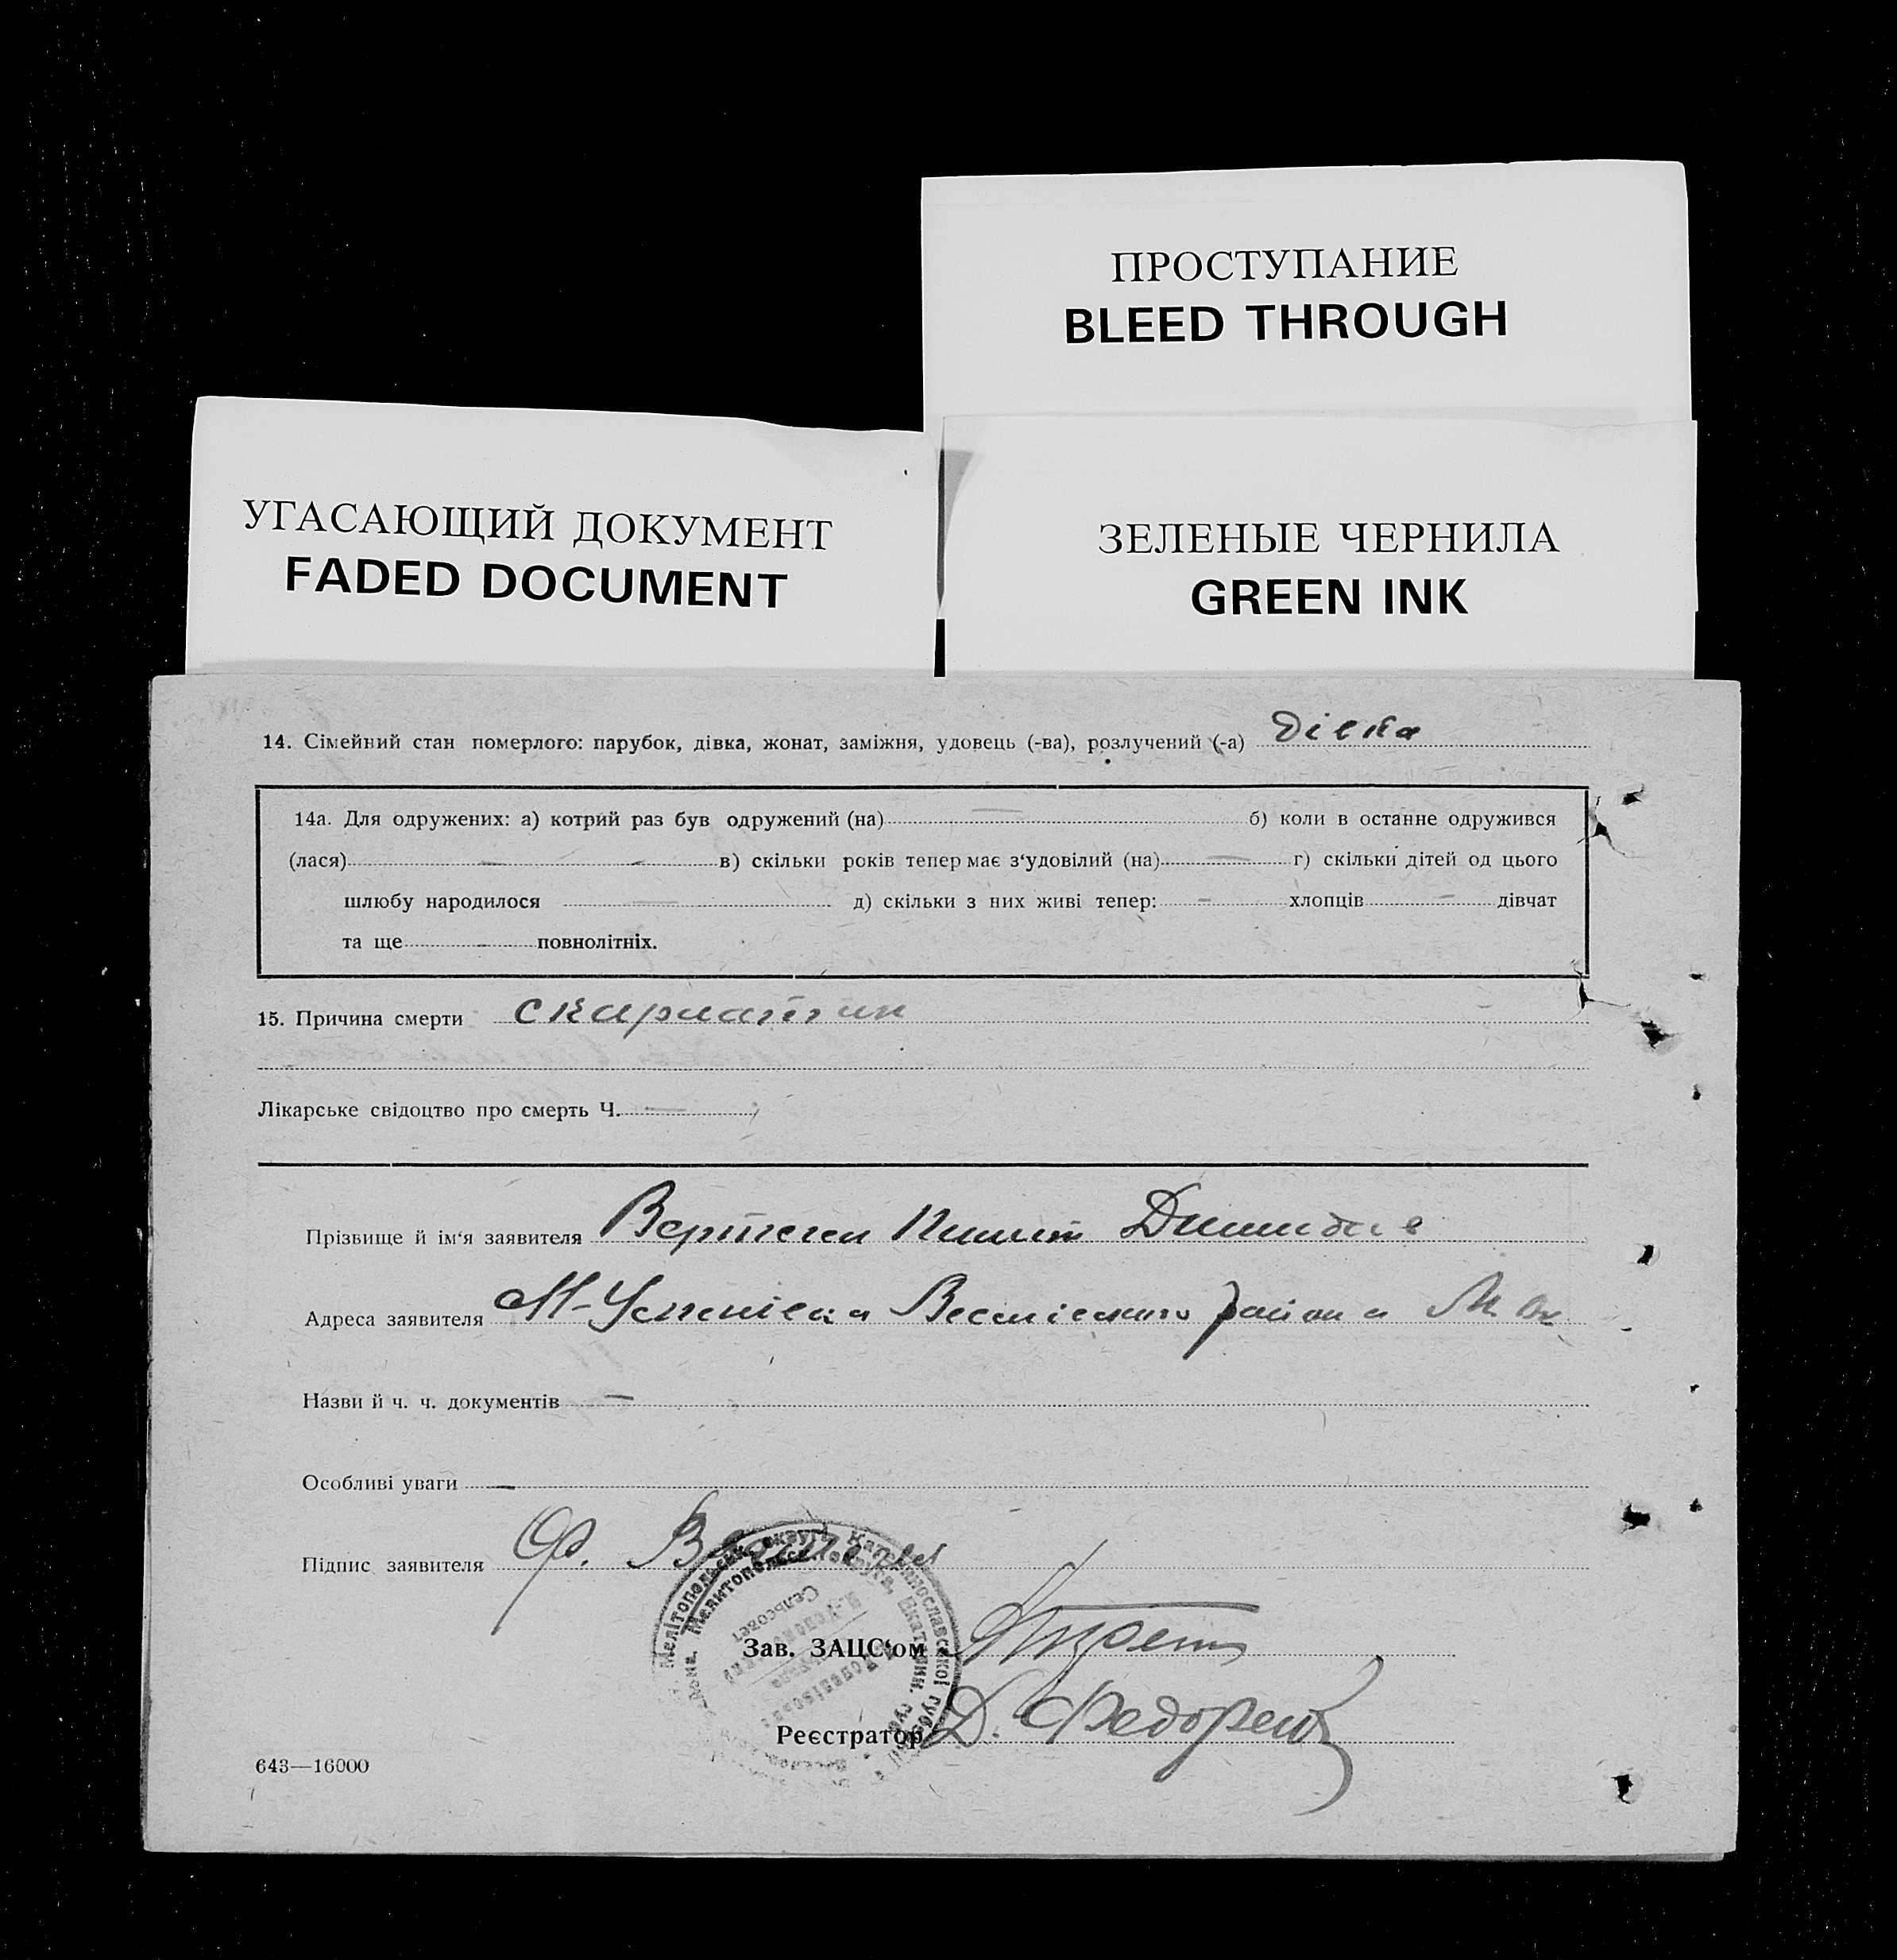 ПРОСТУПАНИЕ
BLEED THROUGH
УГАСАЮЩИЙ ДОКУМЕНТ
FADED DOCUMENT
ЗЕЛЕНЫЕ ЧЕРНИЛА
GREEN INK
14. Сімейний стан померлого: парубок, дівка, жонат, заміжня, удовець (-ва), розлучений (-а) дівка
14а. Для одружених: а) котрий раз був одружений (на) — б) коли в останнє одружився
(лася) — в) скільки років тепер має з‘удовілий (на) — г) скільки дітей од цього
шлюбу народилося — д) скільки з них живі тепер: — хлопців — дівчат
та ще - повнолітніх.
15. Причина смерти скарлатин
Лікарське свідоцтво про смерть Ч. —
Прізвище й ім‘я заявителя
Адреса заявителя М-Успенівка Веселівського району М. Ок
Назви й ч. ч. документів —
Особливі уваги —
Підпис заявителя Ф.
Зав. ЗАЦС‘ом
Реєстратор Д. Федорен
643—16000